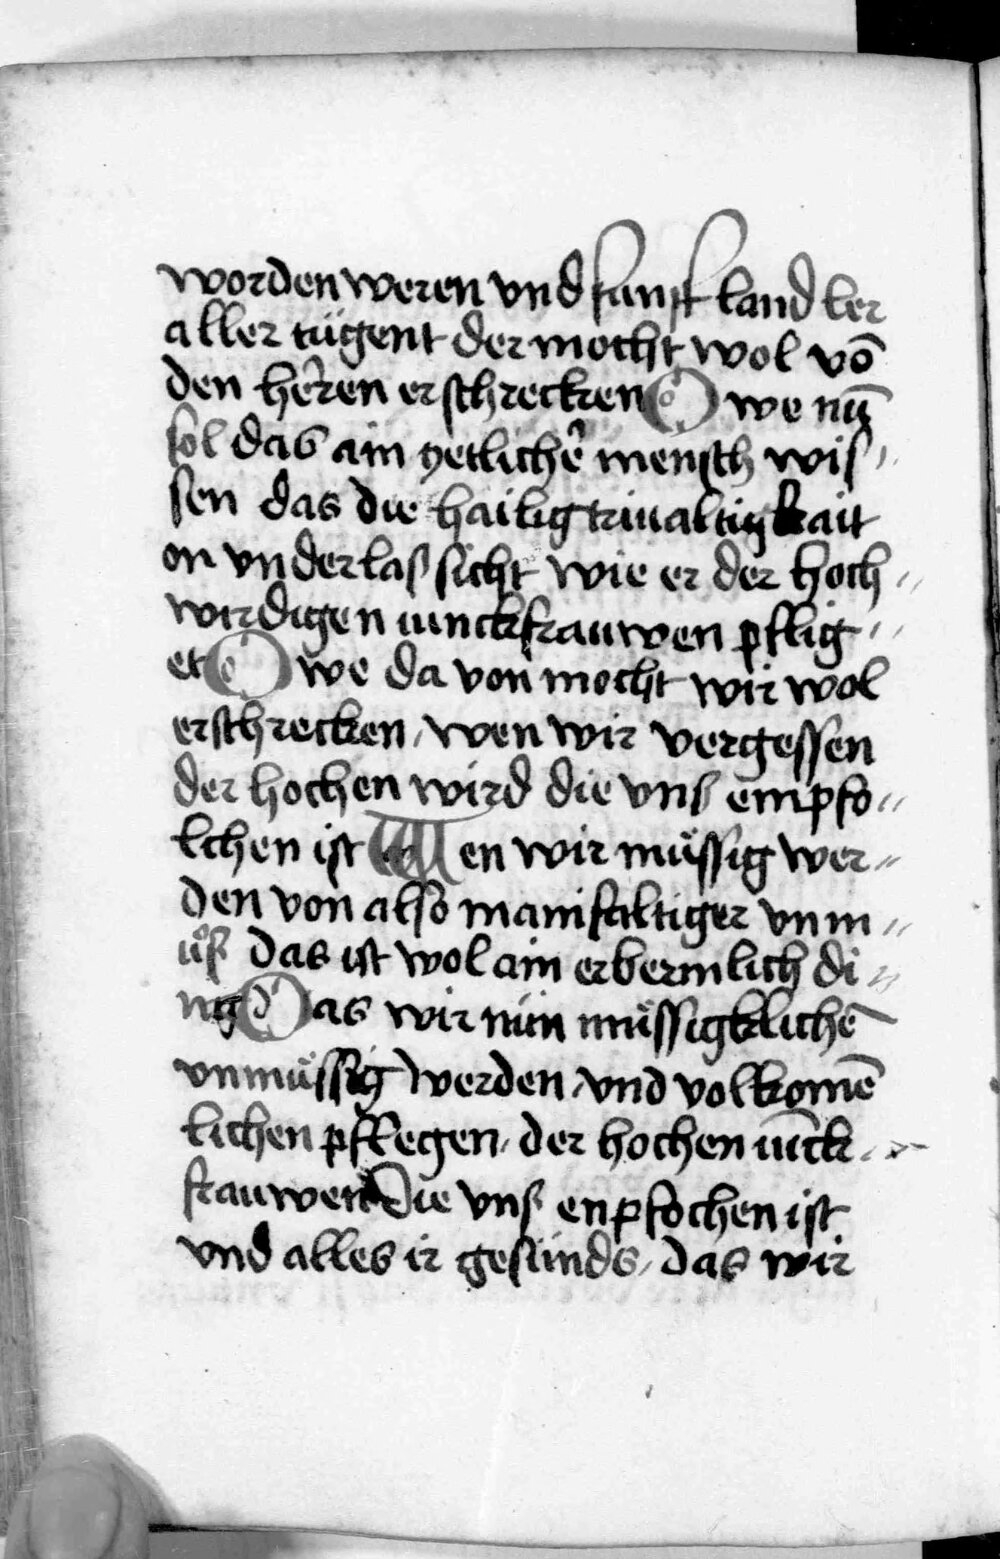 worden weren vnd land ler
aller túgent der mocht wol vō
den heren erschrecken O we nū
sol das ain yetlicher mensch wis¬
sen das die hailig triualtigkait
on vnderlas sicht wie er der hoch¬
wirdigen iunckfrauwen pflig¬
et O we da von mocht wir wol
erschrecken, wen wir vergessen
der hochen wird die vns empfo¬
lchen ist Wen wir muͤssig wer¬
den von also manifaltiger vnm¬
uͦs das ist wol ain erbermlich di¬
ng Das wir nún muͤssigklichē
vnmuͤssig werden, vnd volkomē
lichen pflegen, der hochen iūck¬
frauwen Die vns enpfochen ist
vnd alles ir gesúnds, das wir